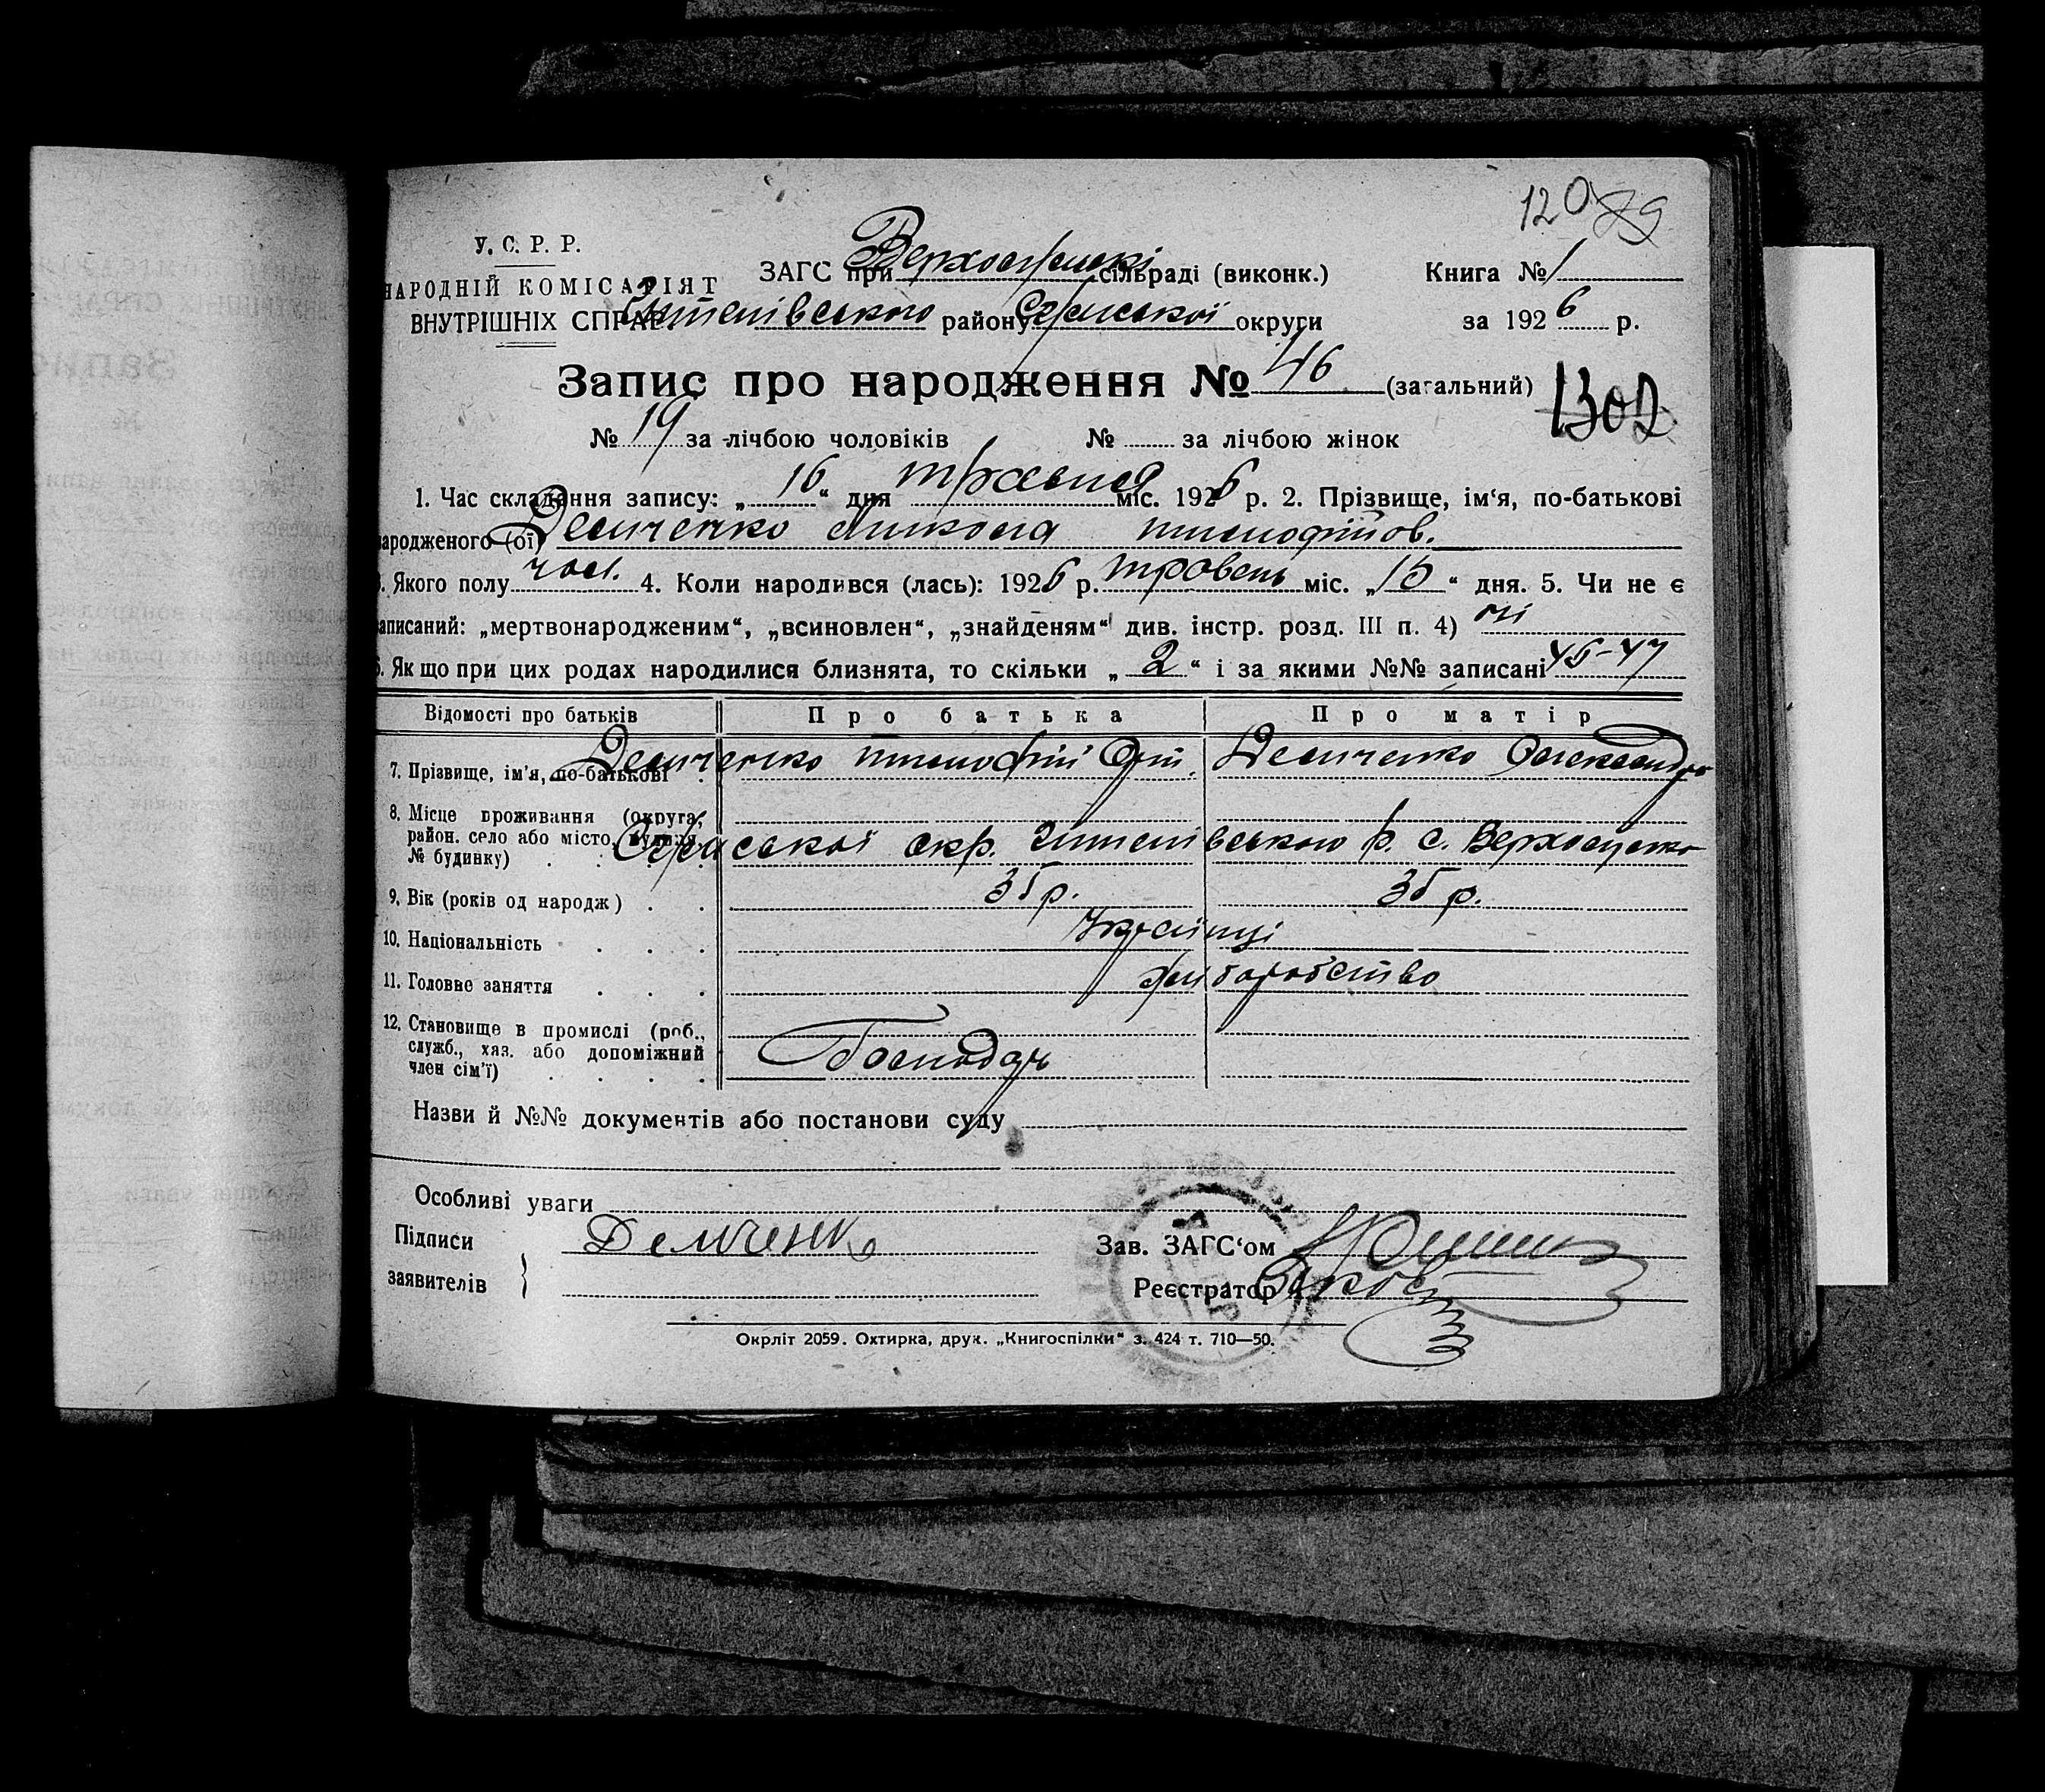 120 79
У. С. Р. Р.
НАРОДНІЙ КОМІСАРІЯТ
ВНУТРІШНІХ СПРАВ
ЗАГС при сільраді (виконк.) Книга № 1
району Сумської округи за 1926 р.
Запис про народження № 46 (загальний) 1302
№ 19 за лічбою чоловіків № за лічбою жінок
1. Час складання запису: „16“ дня травня міс. 1926 р. 2. Прізвище, ім‘я, по-батькові
народженого (ої) Демченко Микола тимофійов.
. Якого полу чол. 4. Коли народився (лась): 1926 р. травень міс. „15“ дня. 5. Чи не є
аписаний: „мертвонародженим“, „всиновлен“, „знайденям“ див. інстр. розд. III п. 4) ні
6. Якщо при цих родах народилися близнята, то скільки „2“ і за якими №№ записані 45-47
Відомості про батьків Про батька Про матір
7. Прізвище, ім‘я, по-батькові Демченко тимофій Демченко Олександра
8. Місце проживання (округа, район. село або місто, вулиця, № будинку) Сумської окр. р. с.
9. Вік (років од народж) 35 р. 35 р.
10. Національність Українці
11. Головне заняття хліборобство
12. Становище в промислі (роб., служб., хяз. або допоміжний член сім‘ї) Господар
Назви й №№ документів або постанови суду
Особливі уваги
Підписи заявителів Демченко
Зав. ЗАГС‘ом
Реєстратор
Окрліт 2059. Охтирка, друк. „Книгоспілки“ з. 424 т. 710—50.